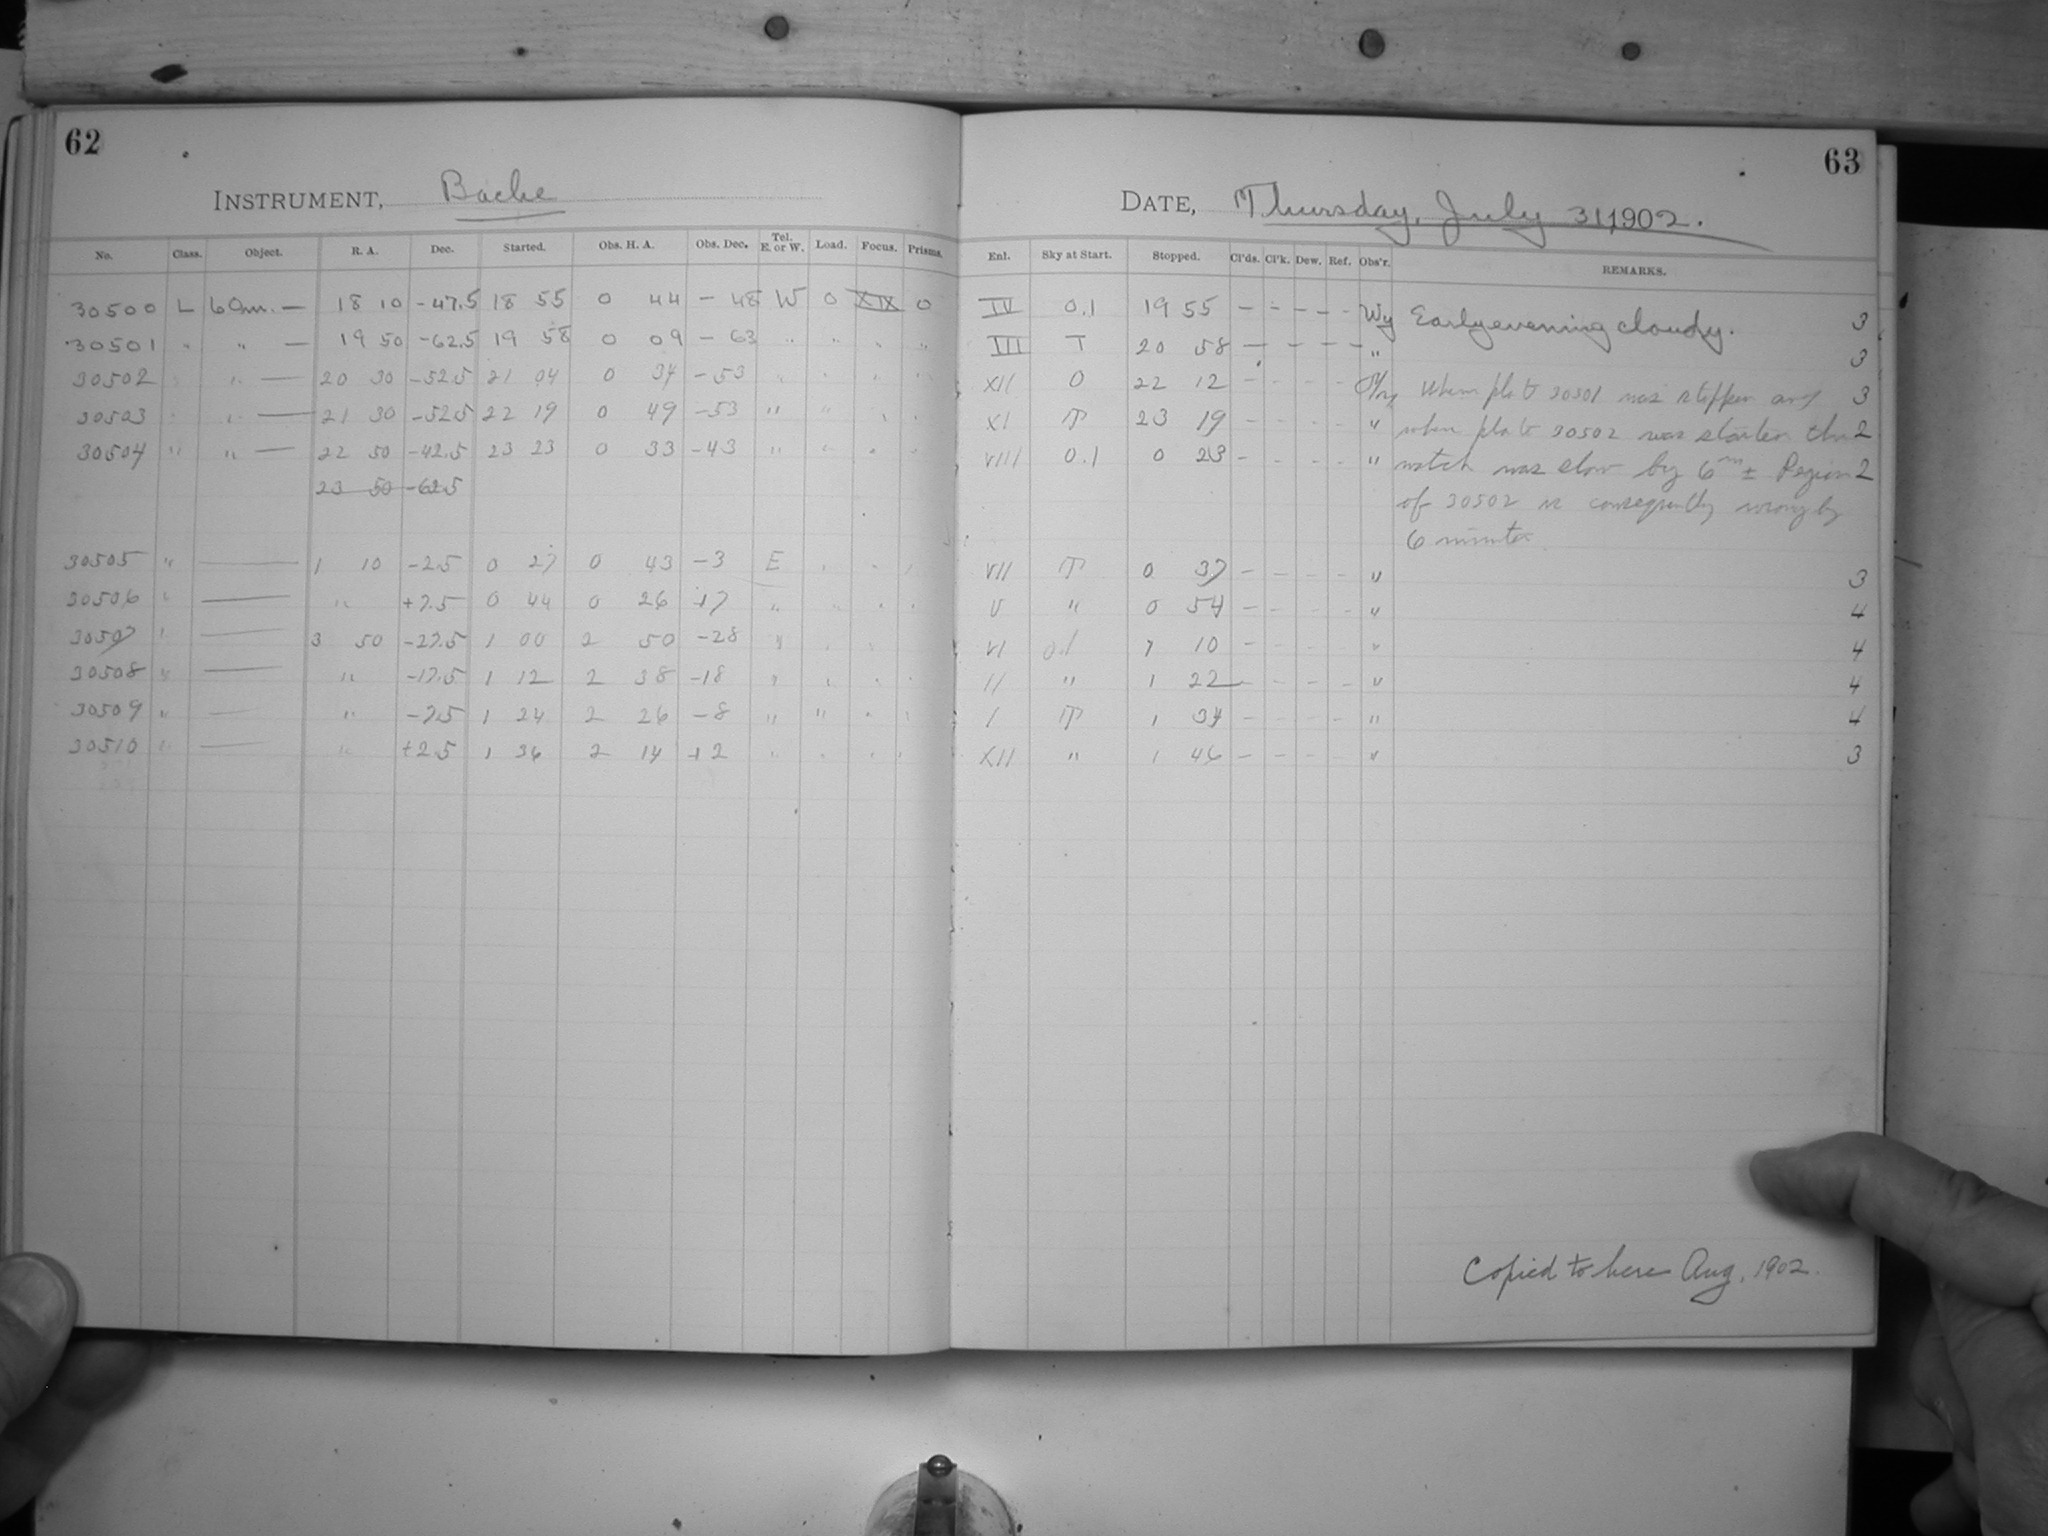 62
INSTRUMENT, Bache
No. Class. Object. R. A. Dec. Started. Obs. H. A. Obs. Dec. Tel. E. or W. Load. Focus. Prisms.
30500 L 60m. — 18 10 -47.5 18 55 0 44 - 48 W 0 XIX 0
30501 " " — 19 50 -62.5 19 58 0 09 - 63 " " " "
30502 " " — 20 30 -52.5 21 04 0 34 -53 " " " "
30503 " " — 21 30 -52.5 22 19 0 49 -53 " " " "
30504 " " — 22 50 -42.5 23 23 0 33 -43 " " " "
23 50 -62.5
30505 " — 1 10 -2.5 0 27 0 43 -3 E " " "
30506 " — " +7.5 0 44 0 26 +7 " " " "
30507 " — 3 50 -27.5 1 00 2 50 -28 " " " "
30508 " — " -17.5 1 12 2 38 -18 " " " "
30509 " — " -7.5 1 24 2 26 -8 " " " "
30510 " — " +2.5 1 36 2 14 +2 " " " "
63
DATE, Thursday, July 31, 1902.
Enl. Sky at Start. Stopped. Cl'ds. Cl'k. Dew. Ref. Obs'r. REMARKS.
IV 0.1 19 55 — — — — Wy Early evening cloudy. 3
III T 20 58 — — — — " 3
XII 0 22 12 - - - - When plate 30501 was stopped and 3
XI T 23 19 - - - - " when plate 30502 was started the 2
VIII 0.1 0 23 - - - - " watch was slow by 6m ± Region 2
of 30502 is consequently wrong by
6 minutes
VII T 0 37 - - - - " 3
V " 0 54 - - - - " 4
VI 0.1 1 10 - - - - " 4
II " 1 22 - - - - " 4
I T 1 34 - - - - " 4
XII " 1 46 - - - - " 3
Copied to here Aug, 1902.